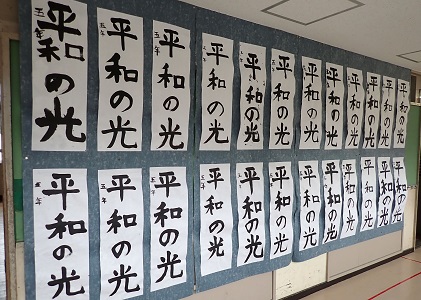 平和の光
五年
平和の光
五年
平和の光
五年
平和の光
平和の光
平和の光
平和の光
平和の光
平和の光
平和の光
平和の光
平和の光
平和の光
五年
平和の光
五年
平和の光
五年
平和の光
平和の光
平和の光
平和の光
平和の光
平和の光
平和の光
平和の光
平和の光